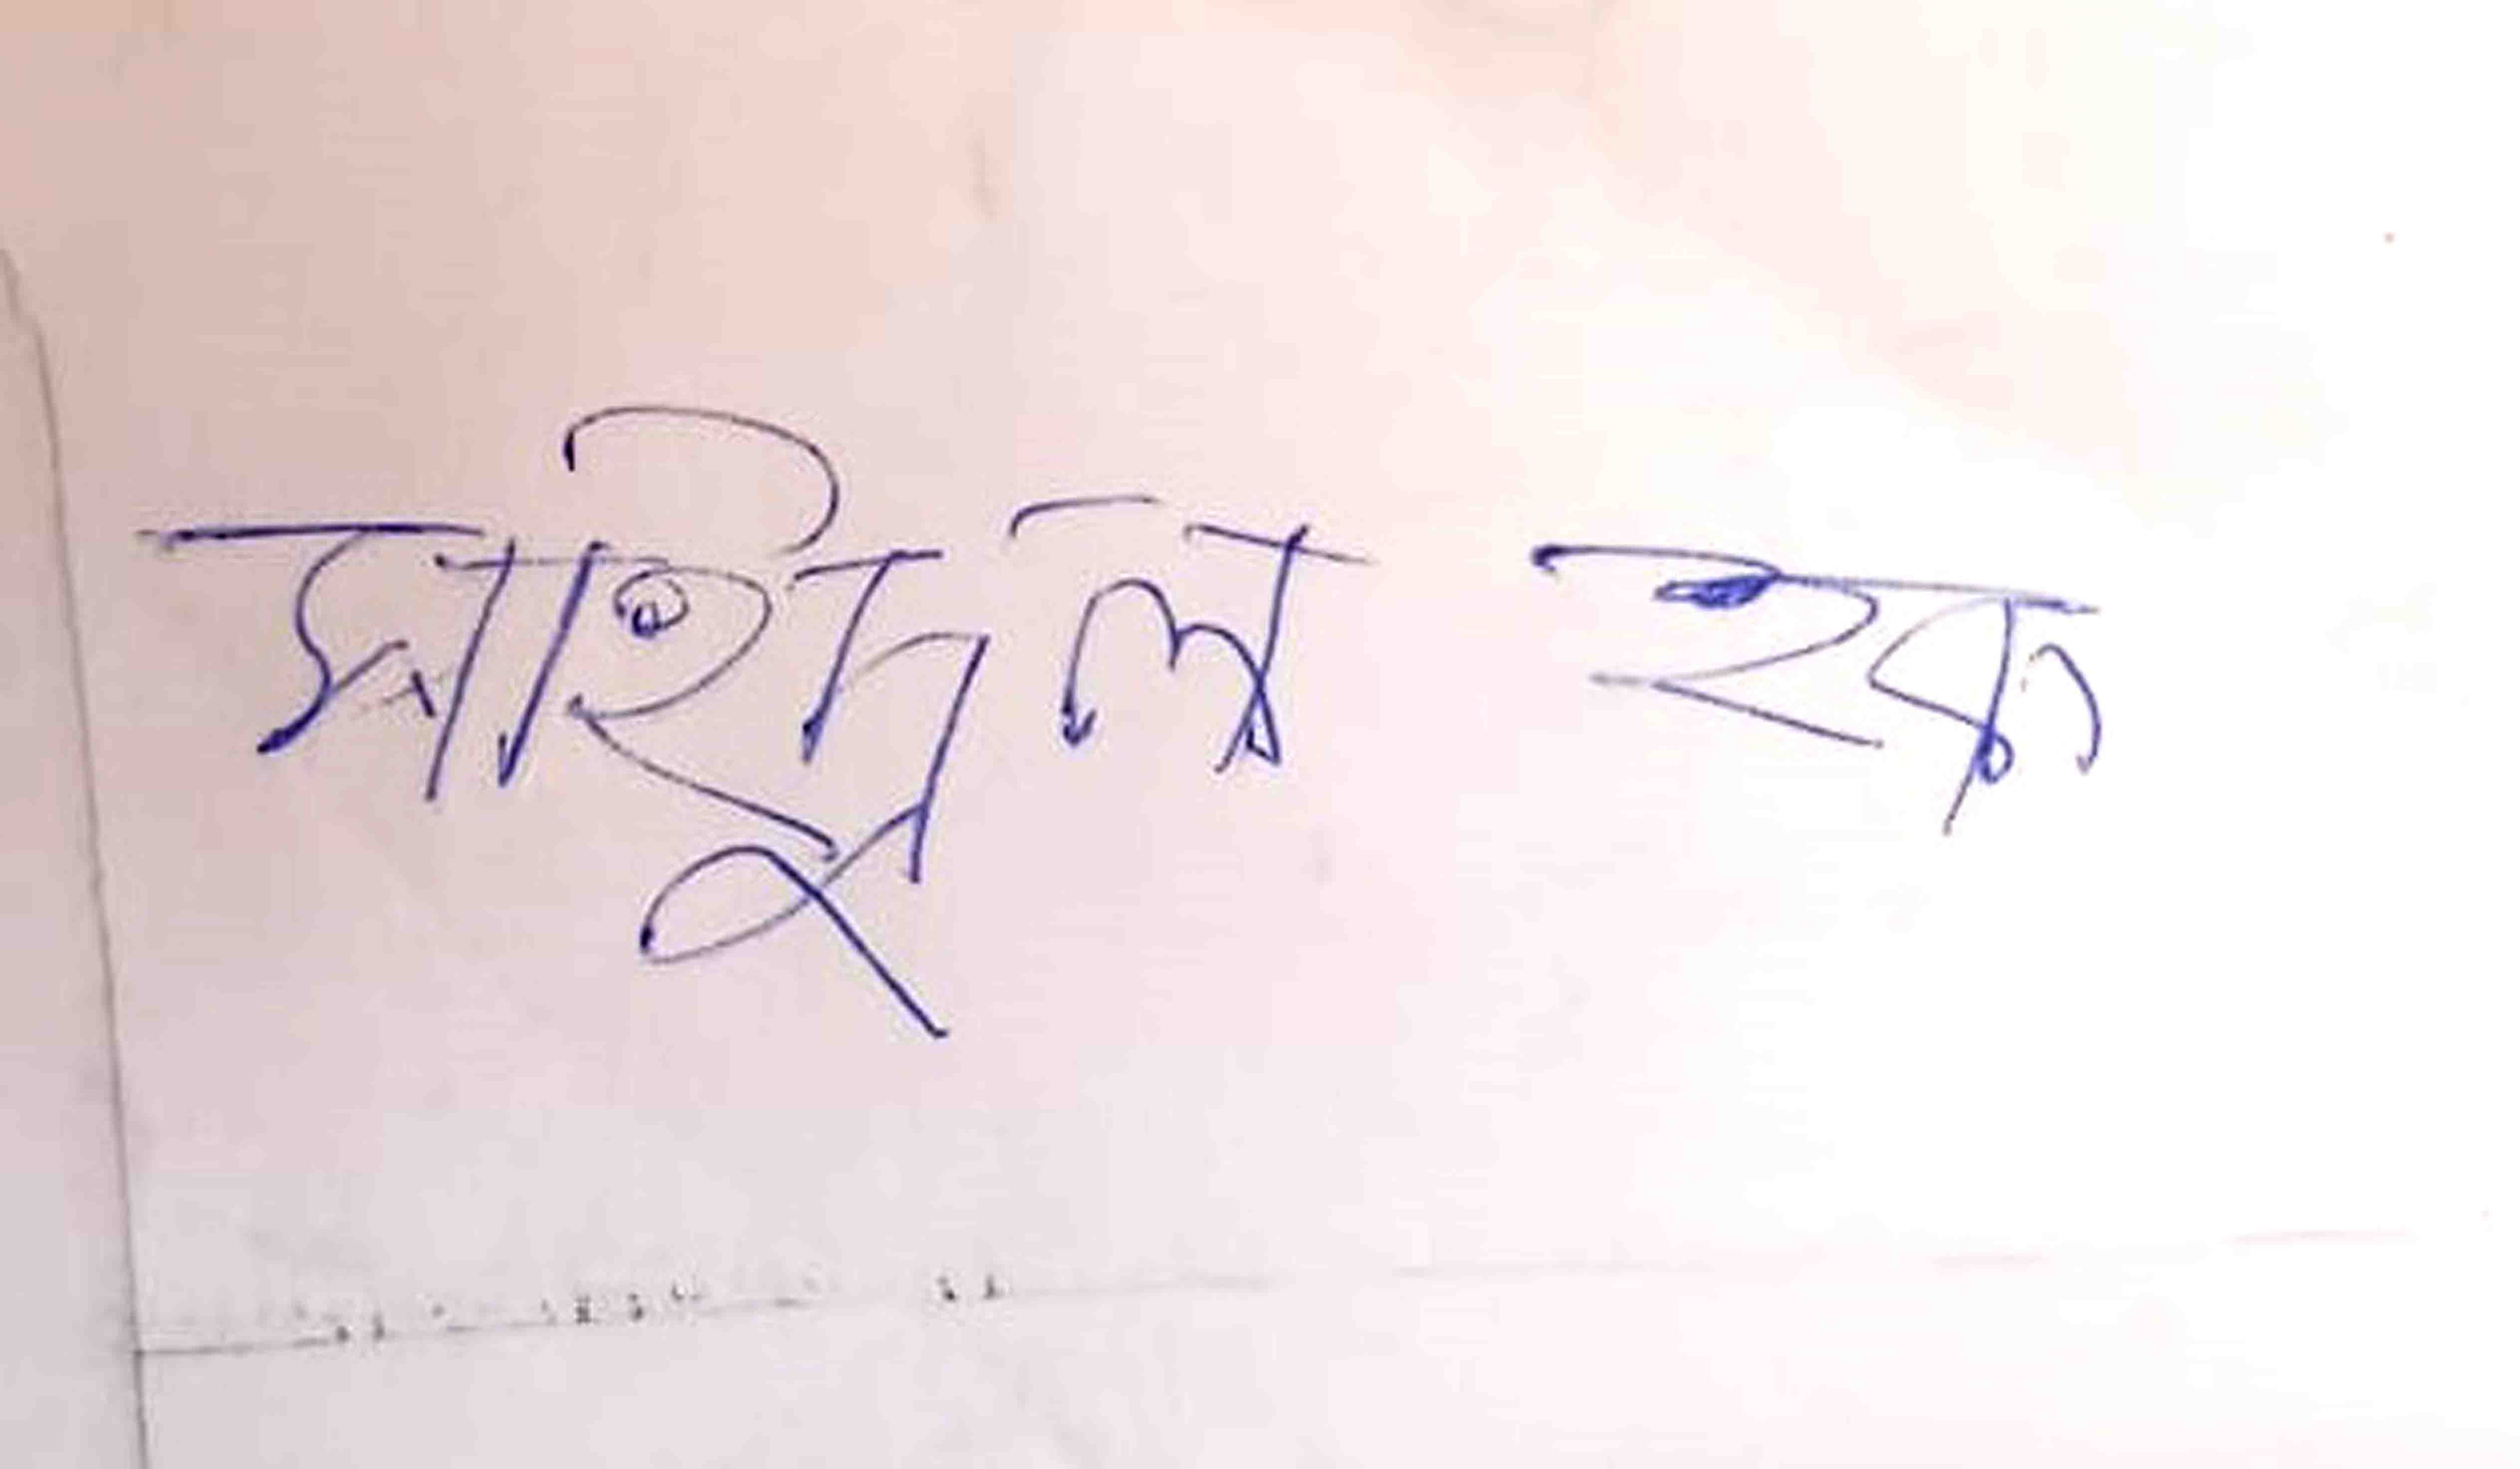 সাহীদুল হক